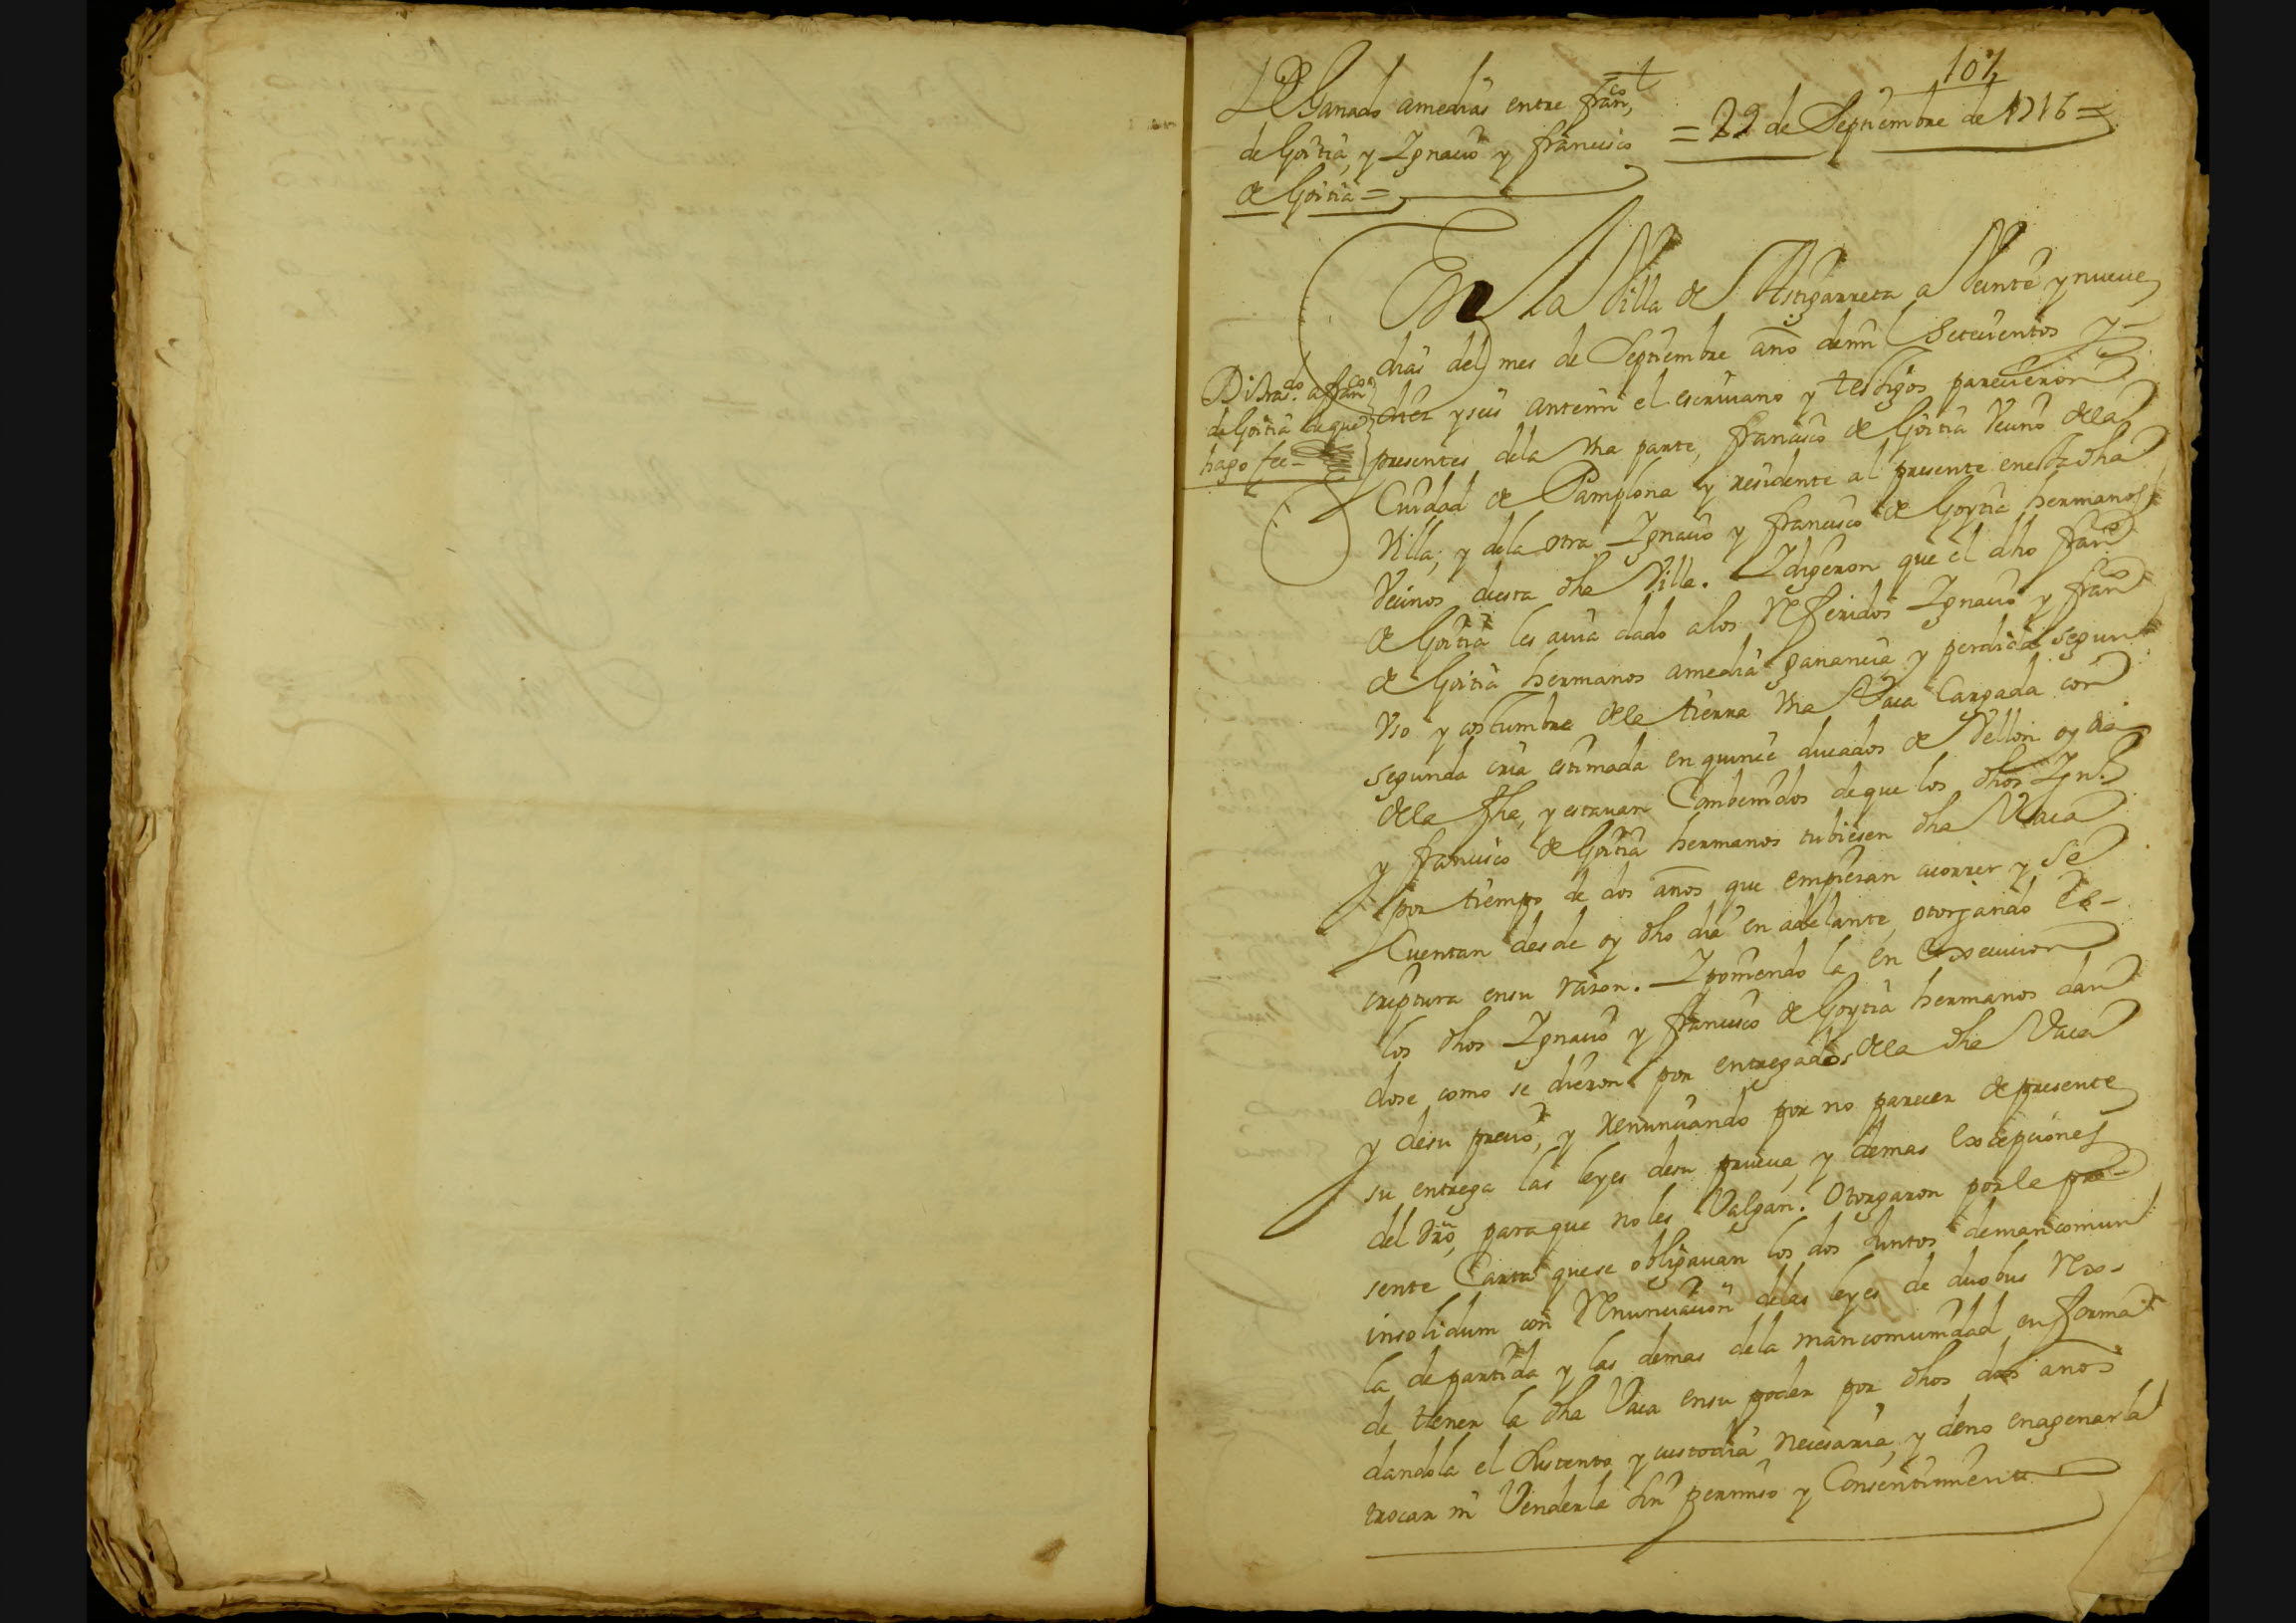 107
Ganado amedias entre fran.co
de Goitia, y Ignacio y francisco
de Goitia =
= 29 de Septiembre de 1716 =
En la Villa de Astigarreta a Veinte y nueue
dias del mes de Septiembre año demil Setecientos y
diez y seis antemi el escriuano y testigos parecieron
presentes dela Vna parte, francisco de Goitia Vecino dela
Ciudad de Pamplona y residente al presente enesta dha
Villa, y dela otra Ignacio y francisco de Goytia hermanos
Vecinos desta dha Villa. Y digeron que el dho fran.co
de Goitia les auia dado alos Referidos Ignacio y fran.co
de Goitia hermanos amedia ganancia y perdida segun
Vso y costumbre dela tierra Vna Vaca Cargada con
segunda cria estimada en quince ducados de Vellon oy dia
dela fha, y estauan Combenidos deque los dhos Ign.o
y francisco de Goitia hermanos tubiesen dha Vaca
por tiempo de dos años que empiesan acorrer y se
Cuentan desde oy dho dia en adelante, otorgando es-
criptura ensu razon. Y poniendo la en execucion
los dhos Ignacio y francisco de Goytia hermanos dan
dose como se dieron por entregados dela dha Vaca
y desu precio, y renunciando por no parecer depresente
su entrega las leyes desu prueua, y demas excepciones
del dro, paraque noles Valgan. Otorgaron porla pre-
sente Carta quese obligauan los dos Juntos demancomun
insolidum con Renunciacion delas leyes de duobus Rex-
la departida y las demas dela mancomunidad en forma
de tener la dha Vaca ensu poder por dhos dos años
dandola el Sustento y custodia necesaria, y deno enagenarla
trocar ni Venderla sin permiso y Consentimiento
Di tras.do a fran.co
de Goitia deque
hago fee -